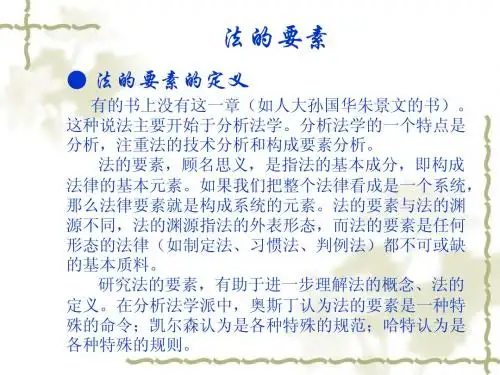 法的要素
● 法的要素的定义
有的书上没有这一章（如人大孙国华朱景文的书）。
这种说法主要开始于分析法学。分析法学的一个特点是
分析，注重法的技术分析和构成要素分析。
法的要素，顾名思义，是指法的基本成分，即构成
法律的基本元素。如果我们把整个法律看成是一个系统，
那么法律要素就是构成系统的元素。法的要素与法的渊
源不同，法的渊源指法的外表形态，而法的要素是任何
形态的法律（如制定法、习惯法、判例法）都不可或缺
的基本质料。
研究法的要素，有助于进一步理解法的概念、法的
定义。在分析法学派中，奥斯丁认为法的要素是一种特
殊的命令；凯尔森认为是各种特殊的规范；哈特认为是
各种特殊的规则。